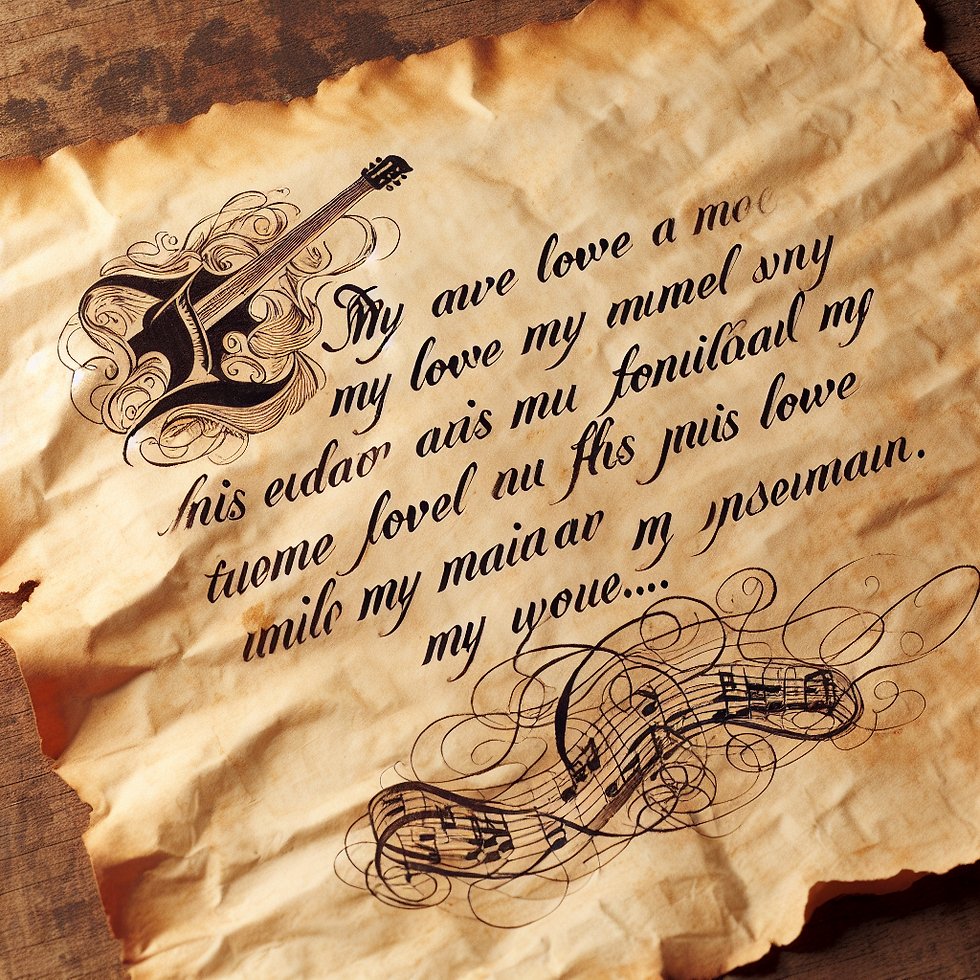 My awe lowe a moe
my lowe my mumel svny
his eudaor anis mu fonuilaail my
tueme fovel nu fhs puis lowe
umilc my maiaar m ynseumain.
my woue....